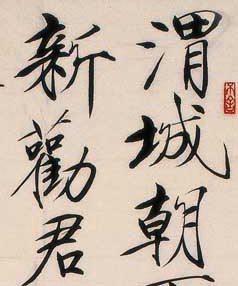 渭城朝
新勸君